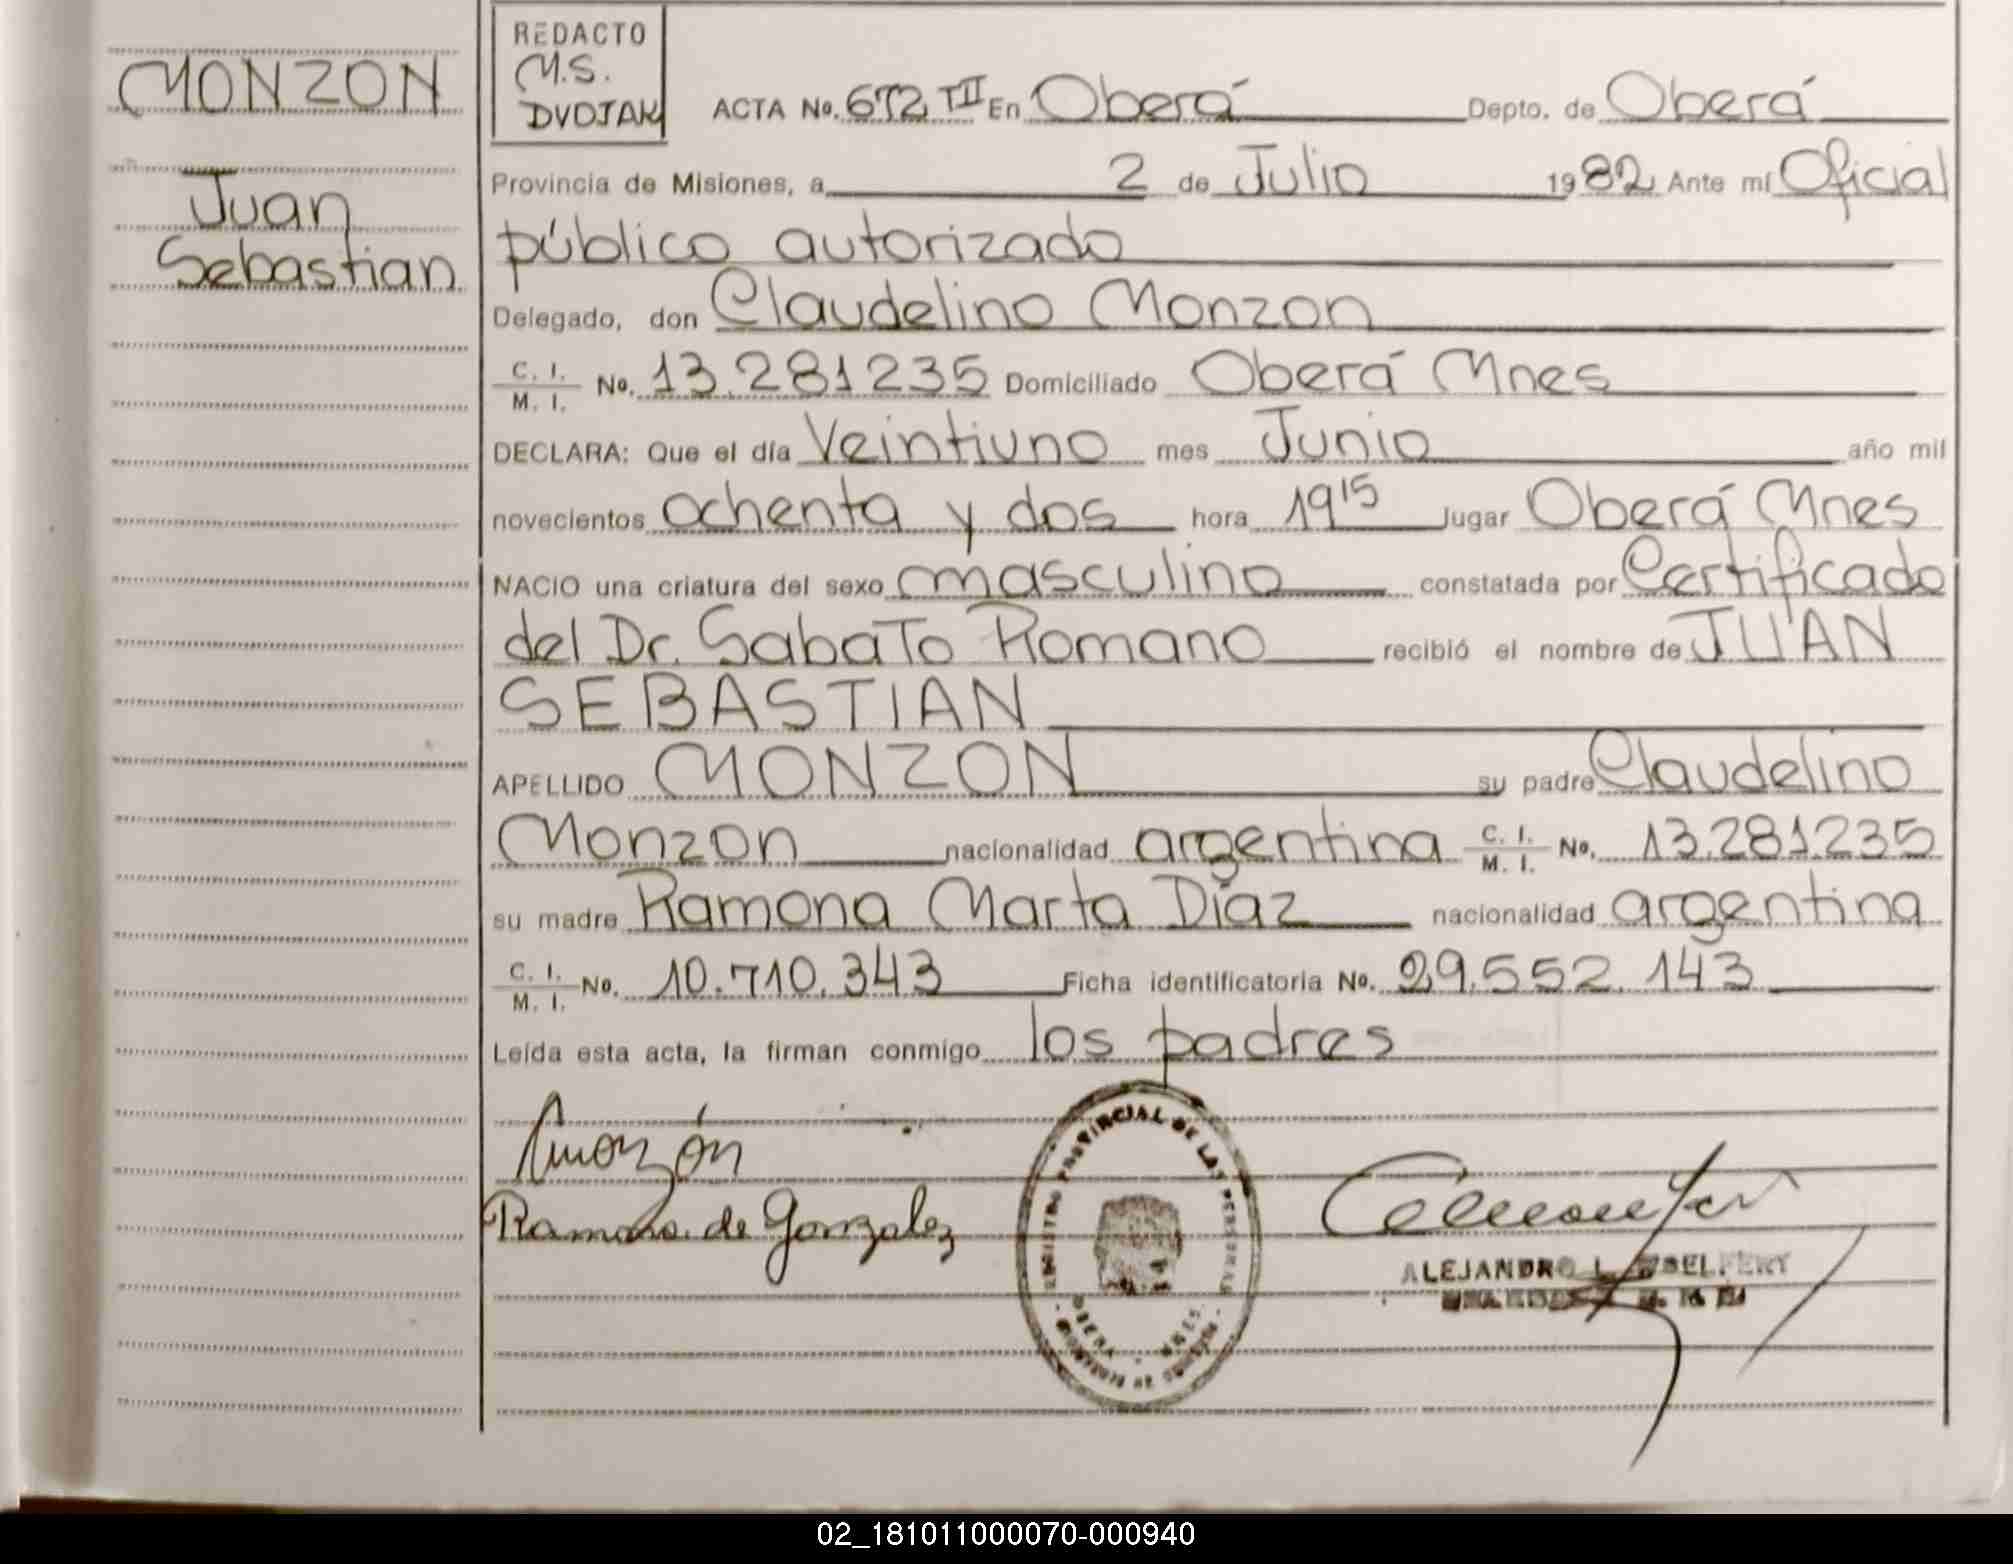 MONZON
Juan
Sebastian
REDACTO
M.S.
DVOJAK
ACTA No. 672 TII En Oberá Depto. de Oberá
Provincia de Misiones, a 2 de Julio 1982 Ante mí Oficial
público autorizado
Delegado, don Claudelino Monzon
C. I. / M. I. No. 13.281235 Domiciliado Oberá Mnes
DECLARA: Que el día Veintiuno mes Junio año mil
novecientos ochenta y dos hora 19 15 lugar Oberá Mnes
NACIO una criatura del sexo masculino constatada por Certificado
del Dr. Sabato Romano recibió el nombre de JUAN
SEBASTIAN
APELLIDO MONZON su padre Claudelino
Monzon nacionalidad argentina C. I. / M. I. No. 13.281.235
su madre Ramona Marta Díaz nacionalidad argentina
C. I. / M. I. No. 10.710.343 Ficha identificatoria No. 29.552.143
Leída esta acta, la firman conmigo los padres
Ramona de Gonzalez
REGISTRO PROVINCIAL DE LAS PERSONAS
OBERA - MNES.
ALEJANDRO L.
02_181011000070-000940